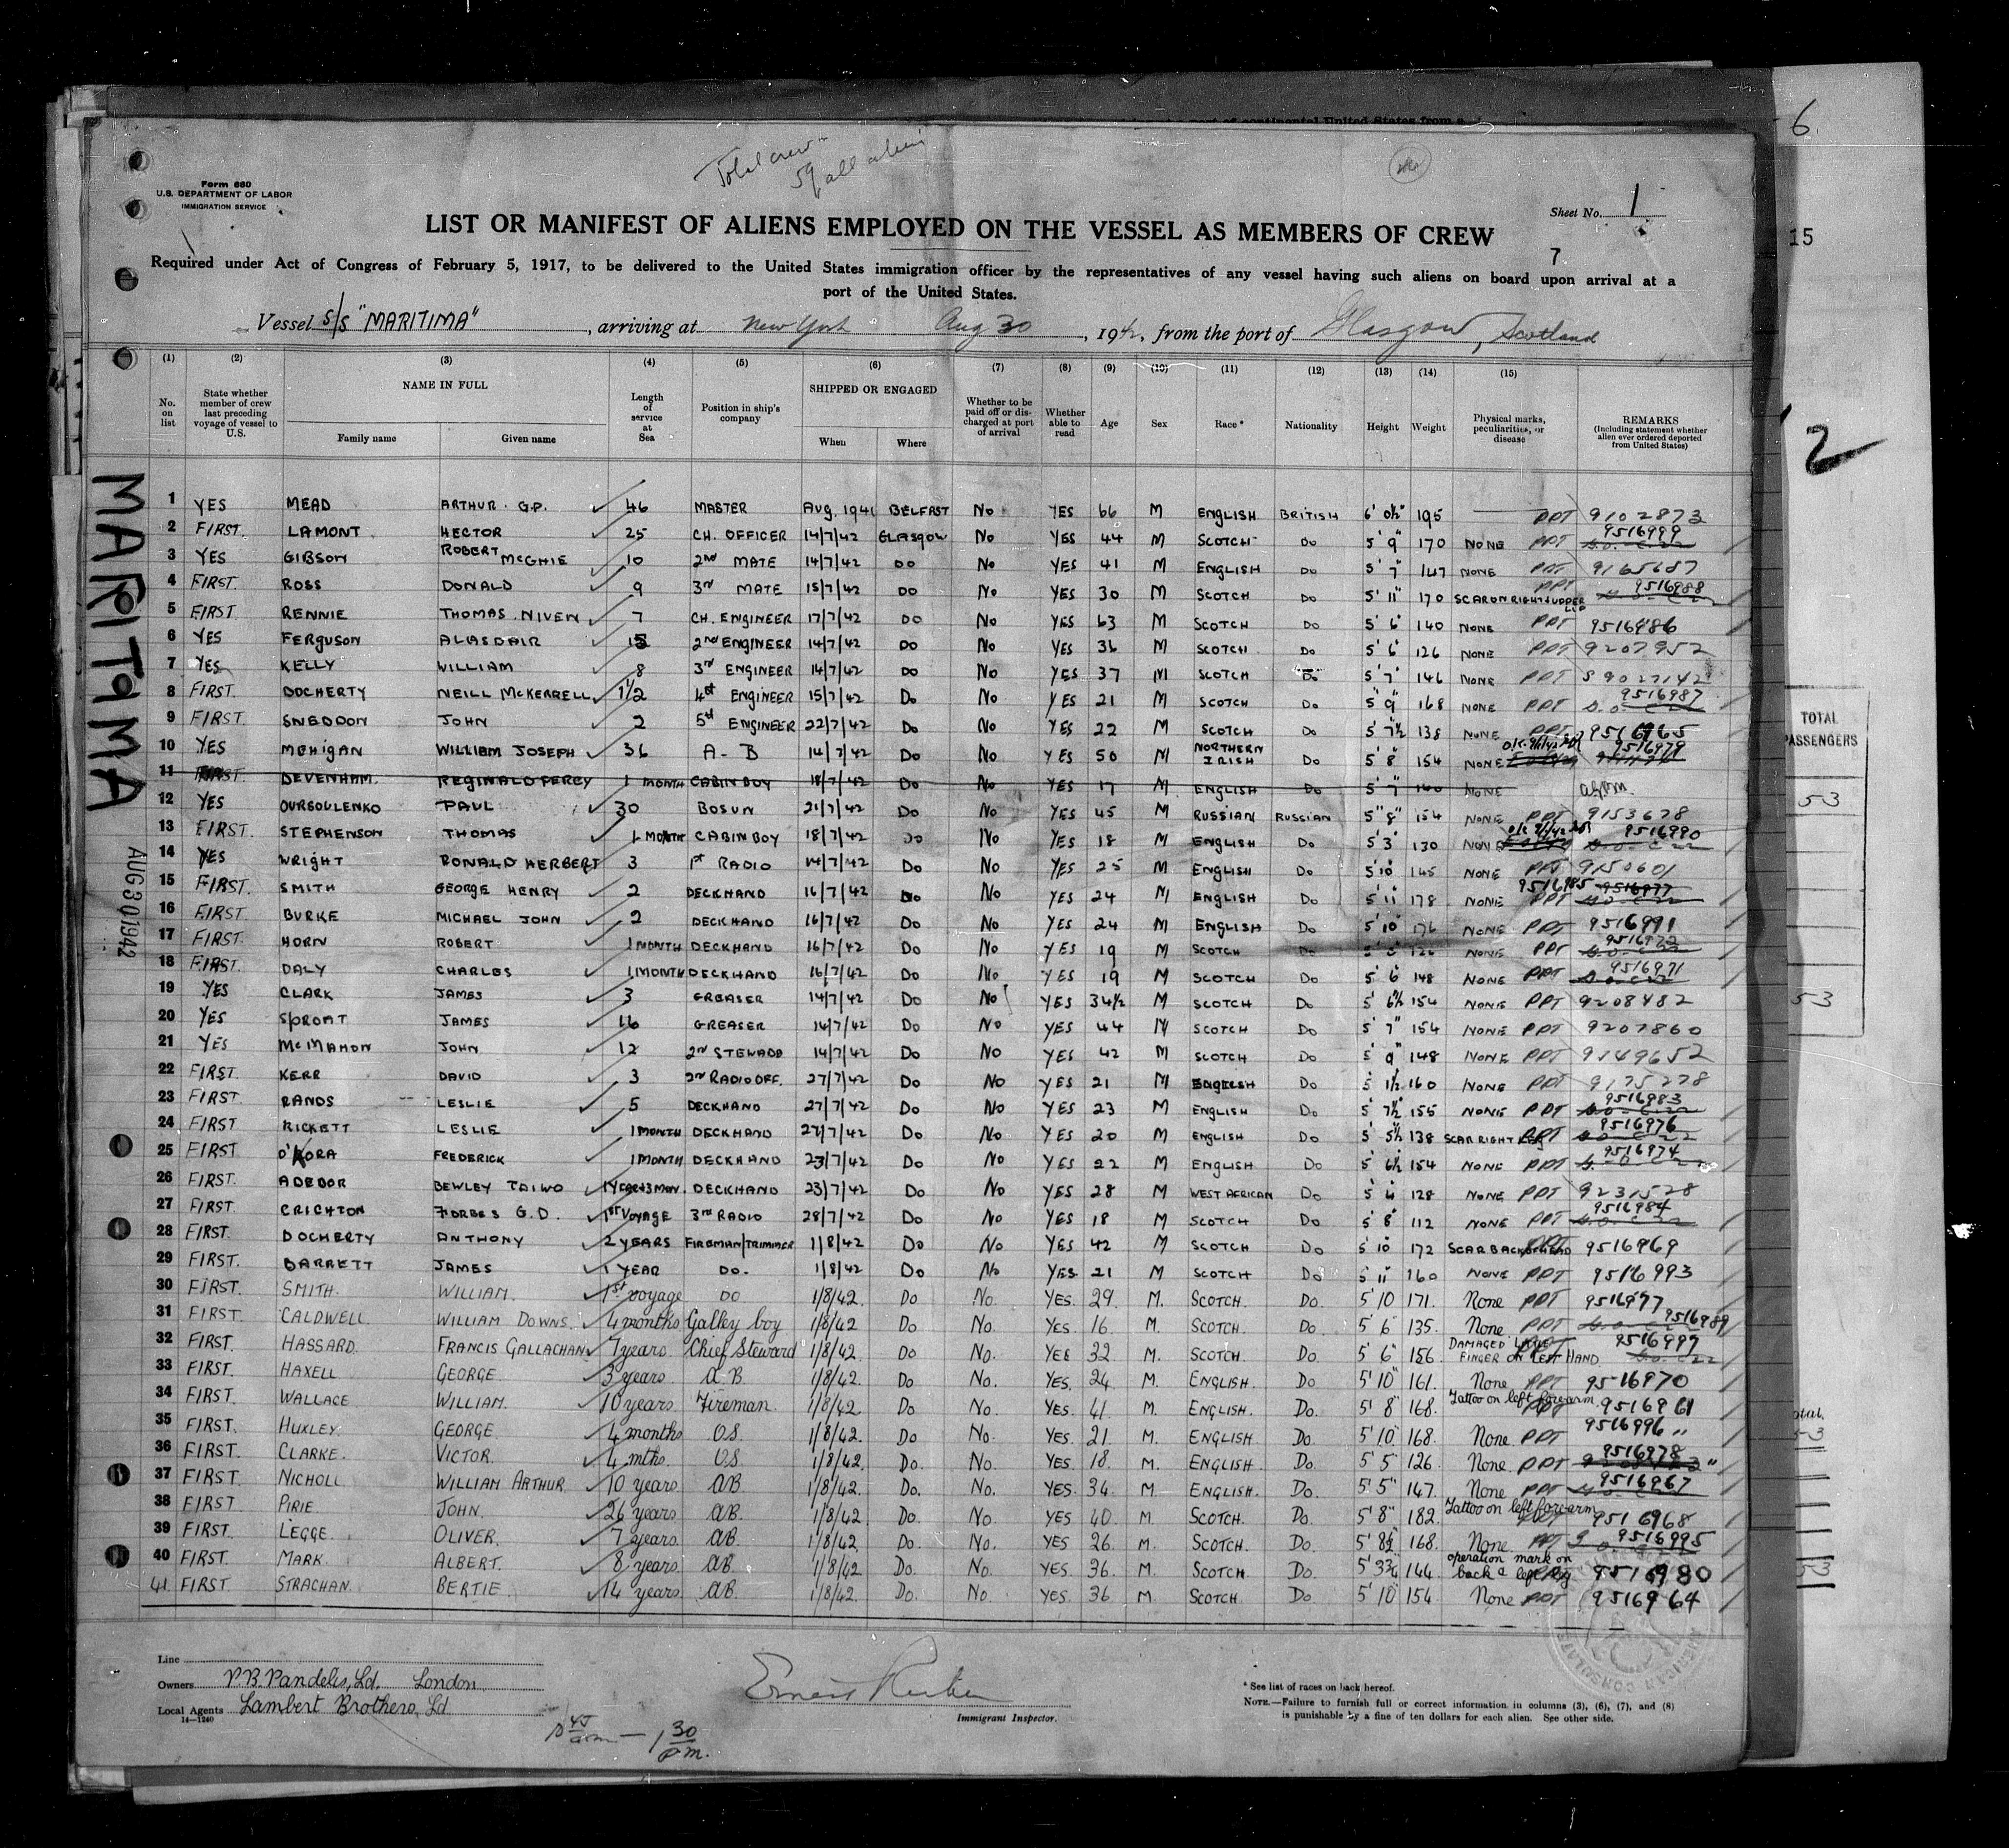 6
Total crew 59 all alien
Form 680
U.S. DEPARTMENT OF LABOR
IMMIGRATION SERVICE
Sheet No. 1
15
LIST OR MANIFEST OF ALIENS EMPLOYED ON THE VESSEL AS MEMBERS OF CREW
7
Required under Act of Congress of February 5, 1917, to be delivered to the United States immigration officer by the representatives of any vessel having such aliens on board upon arrival at a
port of the United States.
Vessel S/S "MARITIMA", arriving at New York Aug 30, 1942, from the port of Glasgow, Scotland
(1) (2) (3) (4) (5) (6) (7) (8) (9) (10) (11) (12) (13) (14) (15)
No. on list State whether member of crew last preceding voyage of vessel to U.S. NAME IN FULL Family name Given name Length of service at Sea Position in ship's company SHIPPED OR ENGAGED When Where Whether to be paid off or discharged at port of arrival Whether able to read Age Sex Race* Nationality Height Weight Physical marks, peculiarities, or disease REMARKS (Including statement whether alien ever ordered deported from United States)
2
MARITIMA
AUG 30 1942
1 YES MEAD ARTHUR G.P. 46 MASTER AUG. 1941 BELFAST No YES 66 M ENGLISH BRITISH 6' 0½" 195 PPT 9102873
2 FIRST. LAMONT HECTOR 25 CH. OFFICER 14/7/42 GLASGOW No YES 44 M SCOTCH Do 5' 9" 170 NONE PPT 9516999
3 YES GIBSON ROBERT McGHIE 10 2ND MATE 14/7/42 DO No YES 41 M ENGLISH Do 5' 7" 147 NONE PPT 9165687
4 FIRST. ROSS DONALD 9 3RD MATE 15/7/42 DO No YES 30 M SCOTCH Do 5' 11" 170 SCAR ON RIGHT UPPER LIP PPT 9516988
5 FIRST RENNIE THOMAS NIVEN 7 CH. ENGINEER 17/7/42 DO No YES 63 M SCOTCH DO 5' 6" 140 NONE PPT 9516986
6 YES FERGUSON ALASDAIR 2ND ENGINEER 14/7/42 DO No YES 36 M SCOTCH Do 5' 6" 126 NONE PPT 9207952
7 YES KELLY WILLIAM 8 3RD ENGINEER 14/7/42 DO No YES 37 M SCOTCH Do 5' 7" 146 NONE PPT
8 FIRST. DOCHERTY NEILL McKERRELL 1½ 4TH ENGINEER 15/7/42 Do No YES 21 M SCOTCH Do 5' 9" 168 NONE PPT 9516987
9 FIRST SNEDDON JOHN 2 5TH ENGINEER 22/7/42 Do No YES 22 M SCOTCH Do 5' 7½ 138 NONE PPT 9516965
10 YES MEHIGAN WILLIAM JOSEPH 36 A-B 14/7/42 Do No YES 50 M NORTHERN IRISH Do 5' 8" 154 NONE 9516979
11 FIRST. DEVENHAM. REGINALD PERCY 1 MONTH CABIN BOY 18/7/42 Do No YES 17 M ENGLISH Do 5' 7" 140 NONE
12 YES OURSOULENKO PAUL 30 BOSUN 21/7/42 Do No YES 45 M RUSSIAN RUSSIAN 5" 8" 154 NONE PPT 9153678
13 FIRST. STEPHENSON THOMAS 1 MONTH CABIN BOY 18/7/42 Do No YES 18 M ENGLISH Do 5' 3" 130 NONE 9516990
14 YES WRIGHT RONALD HERBERT 3 1ST RADIO 14/7/42 Do No YES 25 M ENGLISH Do 5' 10" 145 NONE PPT 9150601
15 FIRST. SMITH GEORGE HENRY 2 DECKHAND 16/7/42 Do No YES 24 M ENGLISH Do 5' 11" 178 NONE PPT 9516985 9516977
16 FIRST BURKE MICHAEL JOHN 2 DECKHAND 16/7/42 Do No YES 24 M ENGLISH Do 5' 10" 176 NONE PPT 9516991
17 FIRST. HORN ROBERT 1 MONTH DECKHAND 16/7/42 Do No YES 19 M SCOTCH Do 126 NONE PPT 9516972
18 FIRST. DALY CHARLES 1 MONTH DECKHAND 16/7/42 Do No YES 19 M SCOTCH Do 5' 6" 148 NONE PPT 9516971
19 YES CLARK JAMES 3 GREASER 14/7/42 Do No YES 34½ M SCOTCH Do 5' 6½ 154 NONE PPT 9208482
20 YES SPROAT JAMES 16 GREASER 14/7/42 Do No YES 44 M SCOTCH Do 5' 7" 154 NONE PPT 9207860
21 YES McMAHON JOHN 12 2ND STEWARD 14/7/42 Do No YES 42 M SCOTCH Do 5' 9" 148 NONE PPT 9149652
22 FIRST. KERR DAVID 3 2ND RADIO OFF. 27/7/42 Do No YES 21 M ENGLISH Do 5' 1½ 160 NONE PPT 9175278
23 FIRST. RANDS LESLIE 5 DECKHAND 27/7/42 Do No YES 23 M ENGLISH Do 5' 7½ 155 NONE PPT 9516983
24 FIRST RICKETT LESLIE 1 MONTH DECKHAND 27/7/42 Do No YES 20 M ENGLISH Do 5' 5½ 138 SCAR RIGHT LEG PPT 9516976
25 FIRST O'KORA FREDERICK 1 MONTH DECKHAND 23/7/42 Do No YES 22 M ENGLISH Do 5' 6½ 154 NONE PPT 9516974
26 FIRST. ADEBOR BEWLEY TAIWO 1 YEAR+3 MON. DECKHAND 23/7/42 Do No YES 28 M WEST AFRICAN Do 5' 4" 128 NONE PPT 9231528
27 FIRST. CRICHTON FORBES G.D. 1ST VOYAGE 3RD RADIO 28/7/42 Do No YES 18 M SCOTCH Do 5' 8" 112 NONE PPT 9516984
28 FIRST. DOCHERTY ANTHONY 2 YEARS FIREMAN/TRIMMER 1/8/42 Do No YES 42 M SCOTCH Do 5' 10" 172 SCAR BACK OF HEAD PPT 9516969
29 FIRST. BARRETT JAMES 1 YEAR DO. 1/8/42 Do No YES. 21 M SCOTCH Do 5' 11" 160 NONE PPT 9516993
30 FIRST. SMITH. WILLIAM. 1st voyage DO 1/8/42. Do No. YES. 29. M. SCOTCH. Do. 5' 10 171. None PPT 9516977
31 FIRST. CALDWELL WILLIAM DOWNS. 4 months Galley boy 1/8/42 Do No. YES. 16 M. SCOTCH. Do 5' 6" 135. None PPT 9516989
32 FIRST. HASSARD. FRANCIS GALLACHAN 7 years. Chief Steward 1/8/42. Do No. YES 32 M. SCOTCH. Do 5' 6" 156. DAMAGED LITTLE FINGER ON LEFT HAND. PPT 9516997
33 FIRST. HAXELL GEORGE. 3 years. A.B. 1/8/42. Do No. YES. 24 M. ENGLISH. Do 5' 10" 161. None PPT 9516970
34 FIRST. WALLACE WILLIAM. 10 years Fireman. 1/8/42. Do No. YES. 41 M. ENGLISH. Do. 5' 8" 168. Tattoo on left forearm PPT 9516961
35 FIRST. HUXLEY. GEORGE. 4 months O.S. 1/8/42. Do No. YES. 21 M. ENGLISH Do. 5' 10" 168. None PPT 9516996 "
36 FIRST. CLARKE. VICTOR. 4 mths. O.S. 1/8/42. Do. No. YES. 18. M. ENGLISH. Do. 5' 5" 126. None PPT 9516978 "
37 FIRST. NICHOLL WILLIAM ARTHUR. 10 years A.B. 1/8/42. Do. No. YES. 34. M. ENGLISH. Do. 5' 5" 147. None PPT 9516967
38 FIRST. PIRIE. JOHN. 26 years A.B. 1/8/42. Do No. YES 40. M. SCOTCH. Do. 5' 8" 182. Tattoo on left forearm PPT 9516968
39 FIRST. LEGGE. OLIVER. 7 years. A.B. 1/8/42. Do. No. YES 26. M. SCOTCH. Do. 5' 8½ 168. None. PPT 9516995
40 FIRST. MARK. ALBERT. 8 years A.B. 1/8/42. Do. No. YES. 36. M. SCOTCH. Do. 5' 3¾ 144. operation mark on back & left leg PPT 9516980
41 FIRST STRACHAN. BERTIE. 14 years A.B. 1/8/42. Do. No. YES. 36 M. SCOTCH. Do. 5' 10" 154 None PPT 9516964
TOTAL
PASSENGERS
53
53
Line
Owners P.B. Pandelis, Ld. London
Local Agents Lambert Brothers, Ld
14—1240
10 45 am — 1 30 pm.
Immigrant Inspector.
* See list of races on back hereof.
NOTE.—Failure to furnish full or correct information in columns (3), (6), (7), and (8)
is punishable by a fine of ten dollars for each alien. See other side.